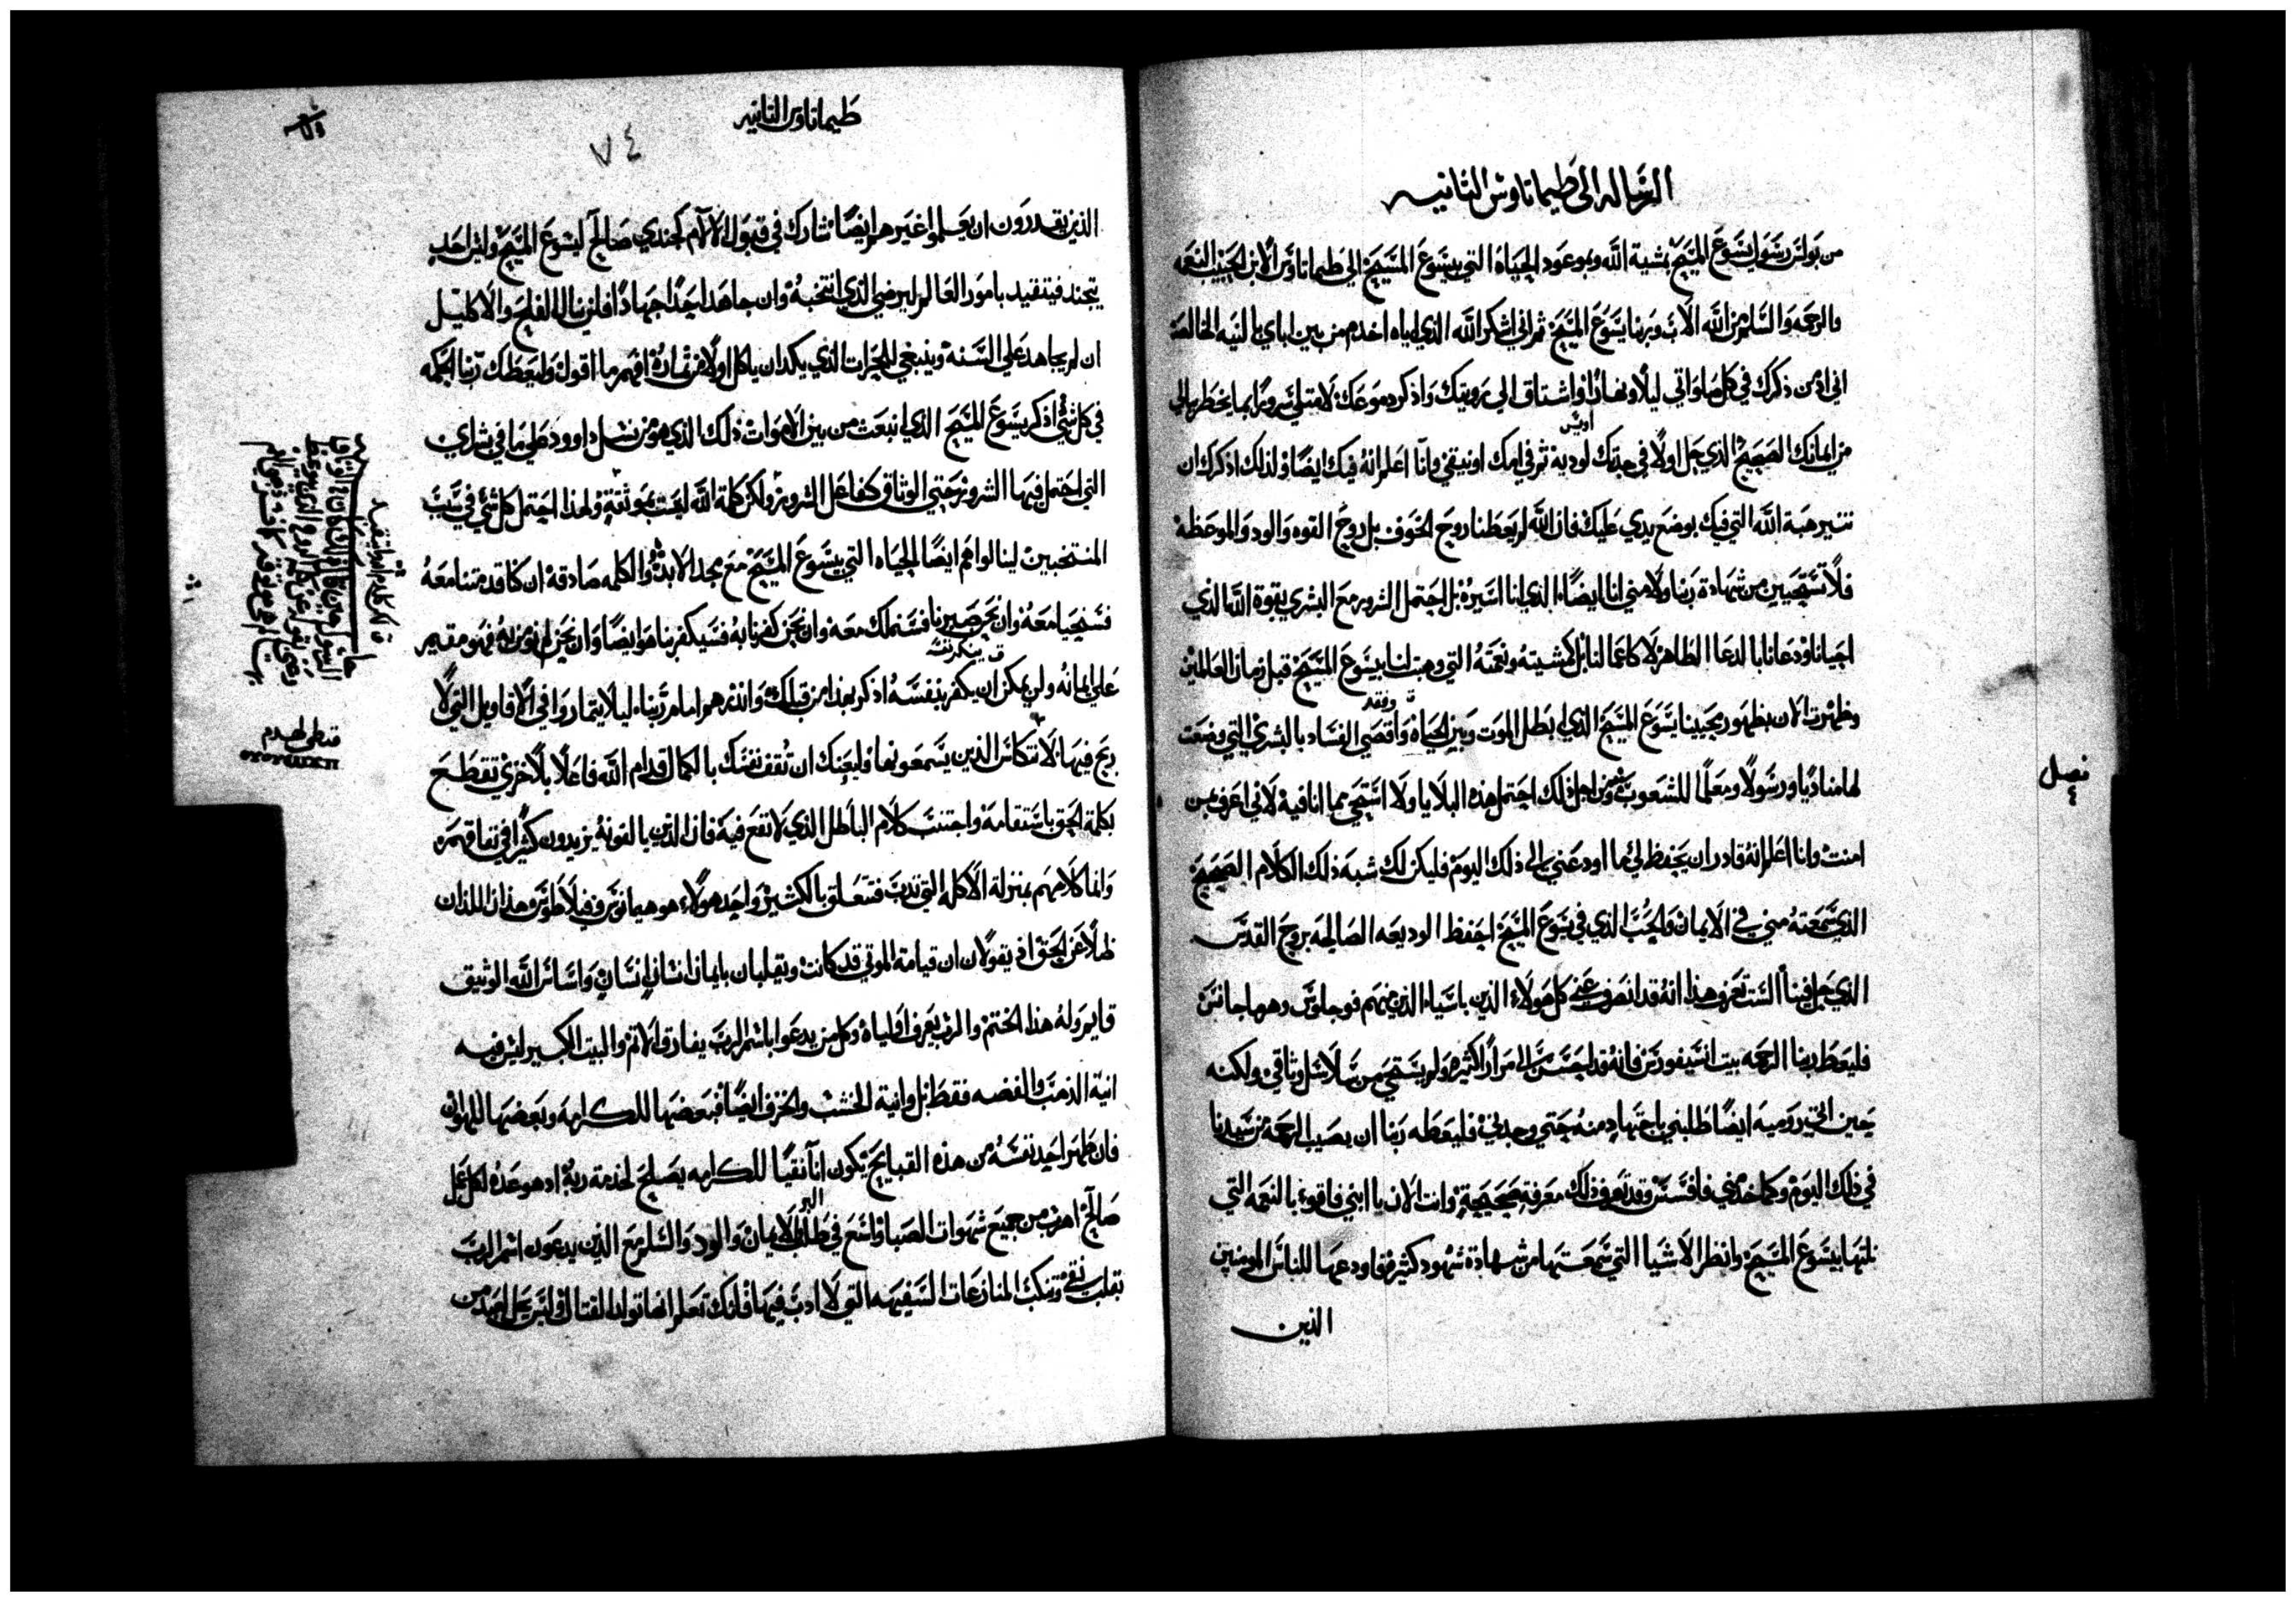 الرساله الى طيماتاوس الثانيه
من بولس رسول يسوع المسيح بمشية الله وبموعود الحياة التي بيسوع المسيح الي طيماتاوس الابن الحبيب النعمه
والرحمه والسلم من الله الاب وربنا يسوع المسيح ثم اني اشكر الله الذي اياه اخدم من بين اباي بالنيه الخالصه
اني ادمن ذكرك في كل صلواتي ليلا ونهارا واشتاق الي رويتك واذكر دموعك لامتلي سرورا بما يخطر ببالي
من ايمانك الصحيح الذي حل اولا في جدتك لوديه ثم في امك اونيقي وانا اعلم انه فيك ايضا ولذلك اذكرك ان
تثير هبة الله التي فيك بوضع يدي عليك فان الله لم يعطنا روح الخوف بل روح القوه والود والموعظة
فلا تستحيين من شهادة ربنا ولا مني انا ايضا الذي انا اسيره بل احتمل الشرور مع البشري بقوة الله الذي
احيانا ودعانا بالدعا الطاهر لا كاعمالنا بل كمشيته ونعمته التي وهبت لنا بيسوع المسيح قبل زمان العالمين
وظهرت الان بظهور محيينا يسوع المسيح الذي ابطل الموت وبين الحياة واقصي الفساد بالبشري التي وضعت
وفقد
لها مناديا ورسولا ومعلما للشعوب ومن اجل ذلك احتمل هذه البلايا ولا استحي مما انا فيه لاني اعرف بمن
فصل
امنت وانا اعلم انه قادر ان يحفظ لي ما اودعني الي ذلك اليوم فليكن لك شبه ذلك الكلام الصحيح
الذي سمعته مني في الايمان والحب الذي في يسوع المسيح احفظ الوديعه الصالحة بروح القدس
الذي حل فينا الست تعرف هذا انه قد انصرف عني كل هولاء الذين باسياء الذين منهم فوجلوس وهرماجانس
فليعط ربنا الرحمه بيت انسيفورس فانه قد احسن الي مرارا كثيرة ولم يستحي من سلاسل وثاقي ولكنه
حين اتي روميه ايضا طلبني باجتهاد منه حتي وجدني فليعطه ربنا ان يصيب الرحمة من سيدنا
في ذلك اليوم وكما خدمني في افسس وقد تعرف ذلك معرفة صحيحة وانت الان يا ابني فاقوء بالنعمه التي
نلتها بيسوع المسيح وانظر الاشيا التي سمعتها من شهادة شهود كثيرة فاودعها للناس المومنين
الذين
طيماتاوس الثانيه
٧٤
الذين يقدرون ان يعلموا غيرهم ايضا شارك في قبول الالام كجندي صالح ليسوع المسيح وليس احد
يتجند فيتقيد بامور العالم ليرضي الذي انتخبه وان جاهد احدا جهادا فلن ينال الفلج والاكليل
ان لم يجاهد علي السنه وينبغي للحراث الذي يكد ان ياكل اولا من ثماره افهم ما اقول وليعطك ربنا الحكمه
في كل شي اذكر يسوع المسيح الذي انبعث من بين الاموات ذلك الذي هو من نسل داوود علي ما في بشراي
التي احتمل فيها الشرور حتي الوثاق كفاعل الشرور ولكن كلمة الله ليست بموثقة ولهذا احتمل كل شي في سبب
المنتخبين لينالوا هم ايضا الحياه التي بيسوع المسيح مع مجد الابد والكلمه صادقه ان كنا قد متنا معه
فسنحيا معه وان نحن صبرنا فسنملك معه وان نحن كفرنا به فسيكفر بنا هو ايضا وان نحن لم نومن به فهو مقيم
علي ايمانه ولن يمكن ان يكفر بنفسه اذكر بهذا من قبلك وانذرهم امام ربنا ليلا يتماروا في الاقاويل التي لا
ربح فيها لانتكاس الذين يسمعونها وليعنك ان تقف نفسك بالكمال قدام الله فاعلا بلا خزي تقطع
بكلمة الحق باستقامة واجتنب كلام الباطل الذي لا نفع فيه فان الذين يالفونه يزيدون كثيرا في نفاقهم
وانما كلامهم بمنزلة الاكله التي تدب فتتعلق بالكثير واحد هولاء هو هيمانوس وفيلاطوس هذان اللذان
ضلا عن الحق اذ يقولان ان قيامة الموتي قد كانت ويقلبان بايمان انسان انسان واساس الله الوثيق
قايم وله هذا الختم والرب يعرف اولياه وكل من يدعوا باسم الرب يفارق الاثم والبيت الكبير ليس فيه
انية الذهب والفضه فقط بل وانية الخشب والخزف ايضا فبعضها للكرامه وبعضها للهوان
فان طهر احد نفسه من هذه القبايح يكون انا نقيا للكرامه يصلح لخدمة ربه اذ هو عده لكل عمل
صالح اهرب من جميع شهوات الصبا واسع في طلب البر والايمان والود والسلم مع الذين يدعون اسم الرب
بقلب نقي وتنكب المنازعات السفيهه التي لا ادب فيها فانك تعلم انها تولد القتال